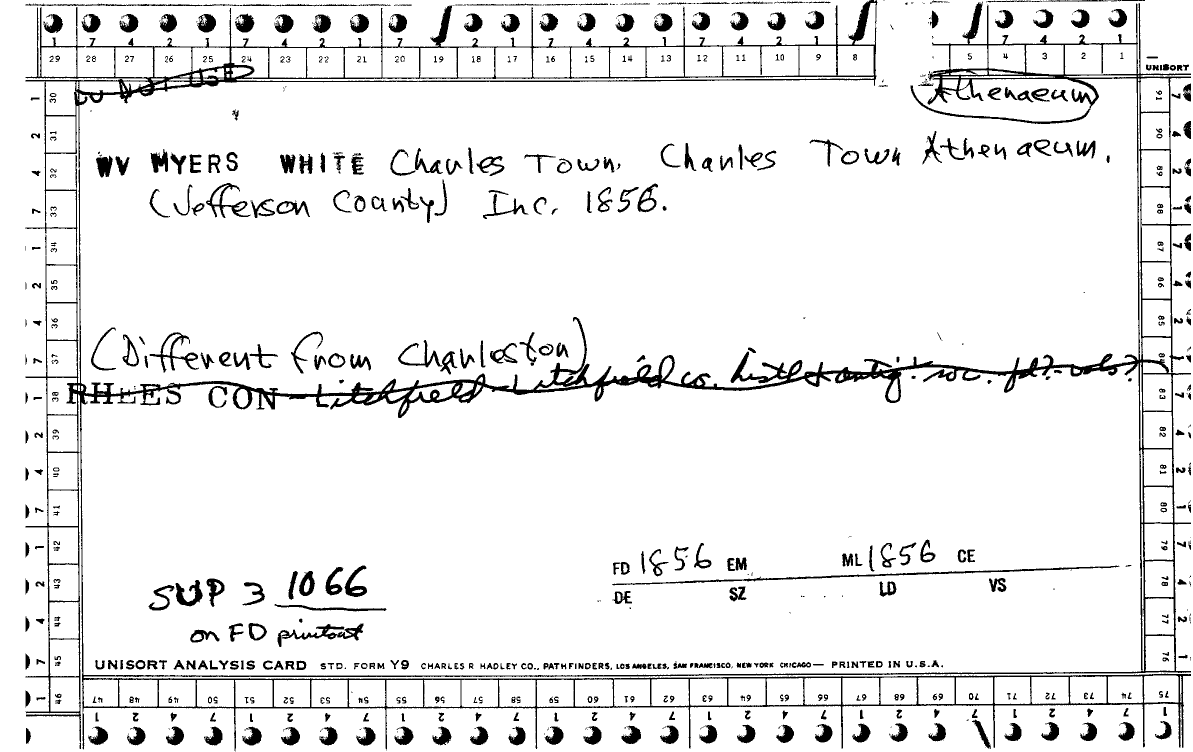 1 7 4 2 1 7 4 2 1 7 4 2 1 7 2 1 7 4 2 1 7 4 2 1 7 4 2 1
29 28 27 26 25 24 23 22 21 20 19 18 17 16 15 14 13 12 11 10 9 8 5 4 3 2 1
UNISORT
DO NOT USE
Athenaeum
WV MYERS WHITE Charles Town. Charles Town Athenaeum.
(Jefferson County) Inc. 1856.
(Different from Charleston)
RHEES CON Litchfield Litchfield co. histl & antiq! soc. fd? vols?
FD 1856 EM ML 1856 CE
DE SZ LD VS
SUP 3 1066
on FD printout
UNISORT ANALYSIS CARD STD. FORM Y9 CHARLES R HADLEY CO., PATHFINDERS, LOS ANGELES, SAN FRANCISCO, NEW YORK CHICAGO— PRINTED IN U.S.A.
47 48 49 50 51 52 53 54 55 56 57 58 59 60 61 62 63 64 65 66 67 68 69 70 71 72 73 74 75